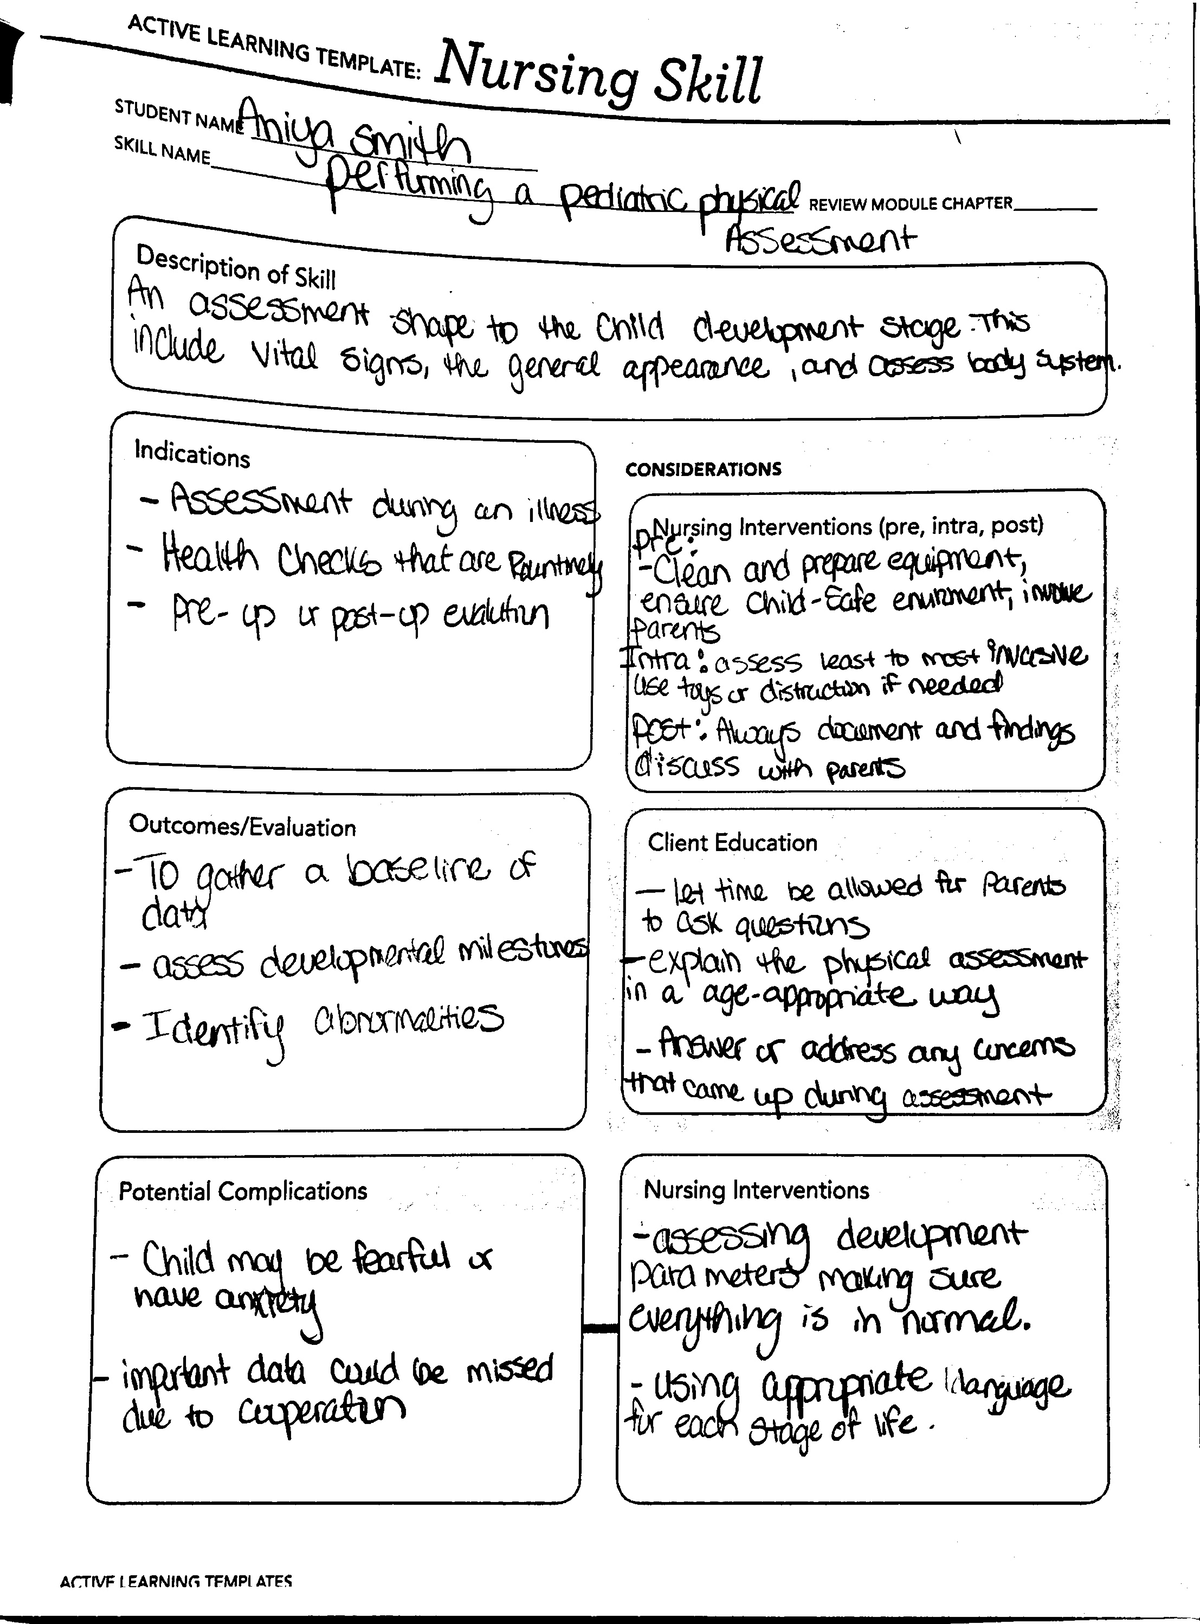 ACTIVE LEARNING TEMPLATE: Nursing Skill
STUDENT NAME Aniya Smith
SKILL NAME performing a pediatric physical REVIEW MODULE CHAPTER
Assessment
Description of Skill
An assessment shape to the child development stage. This
include vital signs, the general appearance, and assess body system.
Indications
- Assessment during an illness
- Health checks that are Rountinely
- pre-op or post-op evalution
CONSIDERATIONS
Nursing Interventions (pre, intra, post)
pre:
- Clean and prepare equipment,
ensure child-safe enviroment, involve
parents
Intra: assess least to most invasive
use toys or distruction if needed
Post: Always document and findings
discuss with parents
Outcomes/Evaluation
- To gather a baseline of
data
- assess developmental milestones
- Identify abnormalities
Client Education
- let time be allowed for parents
to ask questions
- explain the physical assessment
in a age-appropriate way
- Answer or address any concerns
that came up during assessment
Potential Complications
- Child may be fearful or
have anxiety
- important data could be missed
due to cooperation
Nursing Interventions
- assessing development
parameters making sure
everything is in normal.
- using appropriate language
for each stage of life.
ACTIVE LEARNING TEMPLATES